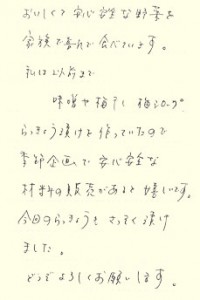 おいしくて安心安全な野菜を
家族で喜んで食べています。
私は以前まで
味噌や梅干し 梅シロップ
らっきょう漬けを作っていたので
季節企画で安心安全な
材料の販売があると嬉しいです。
今回のらっきょうもさっそく漬け
ました。
どうぞよろしくお願いします。